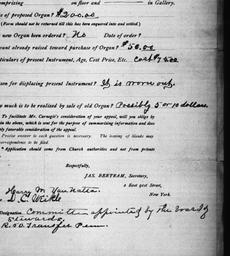 omprising floor and in Gallery.
e of proposed Organ? $200.00
(Form should not be returned till this has been squared into and settled.)
new Organ been ordered? No Date of order?
ount already raised toward purchase of Organ? $50.00
ticulars of present Instrument, Age, Cost Price, Etc.
son for displacing present Instrument? It is worn out.
w much is to be realized by sale of old Organ? Possibly 5 or 10 dollars.
To facilitate Mr. Carnegie's consideration of your appeal, will you oblige by
in the above, which is used for the purpose of summarizing information and does
ly favorable consideration of the appeal.
Precise answer to each question is necessary. The issuing of blanks may
orrespondence to be filed.
* Application should come from Church authorities and not from private
Respectfully,
JAS. BERTRAM, Secretary,
2 East 91st Street,
New York.
Harry M. Van
D. C. Weikle
Designation Committee appointed by the board of
Stewards,
Transfer Penn.